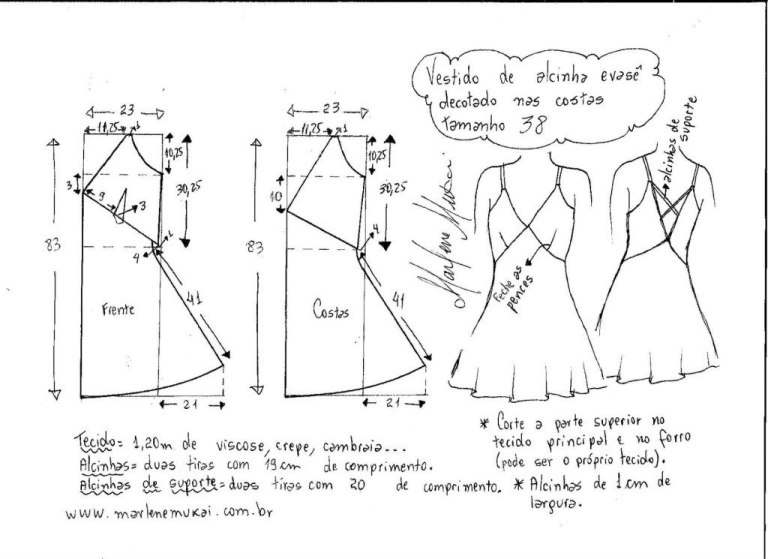 Vestido de alcinha evasê
decotado nas costas
tamanho 38
23
11,25
1
10,25
30,25
3
9
3
4
1
83
41
Frente
21
23
11,25
1
10,25
30,25
10
4
1
83
41
Costas
21
Marlene Mukai
Feche as
pences
alcinhas de
suporte
Tecido= 1,20m de viscose, crepe, cambraia...
Alcinhas= duas tiras com 19cm de comprimento.
Alcinhas de suporte= duas tiras com 20 de comprimento.
www.marlenemukai.com.br
* Corte a parte superior no
tecido principal e no forro
(pode ser o próprio tecido).
* Alcinhas de 1cm de
largura.